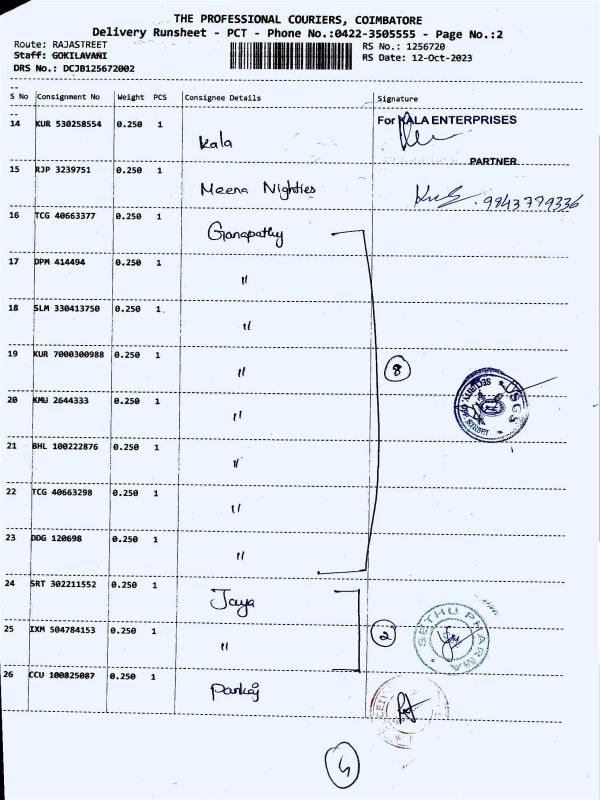 THE PROFESSIONAL COURIERS, COIMBATORE
Delivery Runsheet - PCT - Phone No.:0422-3505555 - Page No.:2
Route: RAJASTREET
RS No.: 1256720
Staff: GOKILAVANI
RS Date: 12-Oct-2023
DRS No.: DCJB125672002
S No Consignment No Weight PCS Consignee Details Signature
14 KUR 530258554 0.250 1 Kala For KALA ENTERPRISES
PARTNER
15 RJP 3239751 0.250 1 Meena Nighties 9943779336
16 TCG 40663377 0.250 1 Ganapathy
17 DPM 414494 0.250 1 "
18 SLM 330413750 0.250 1 "
19 KUR 7000300988 0.250 1 " 8
20 KMU 2644333 0.250 1 "
21 BHL 100222876 0.250 1 "
22 TCG 40663298 0.250 1 "
23 DDG 120698 0.250 1 "
24 SRT 302211552 0.250 1 Jaya
25 IXM 504784153 0.250 1 " 2 SETHU PHARMA
26 CCU 100825087 0.250 1 Pankaj